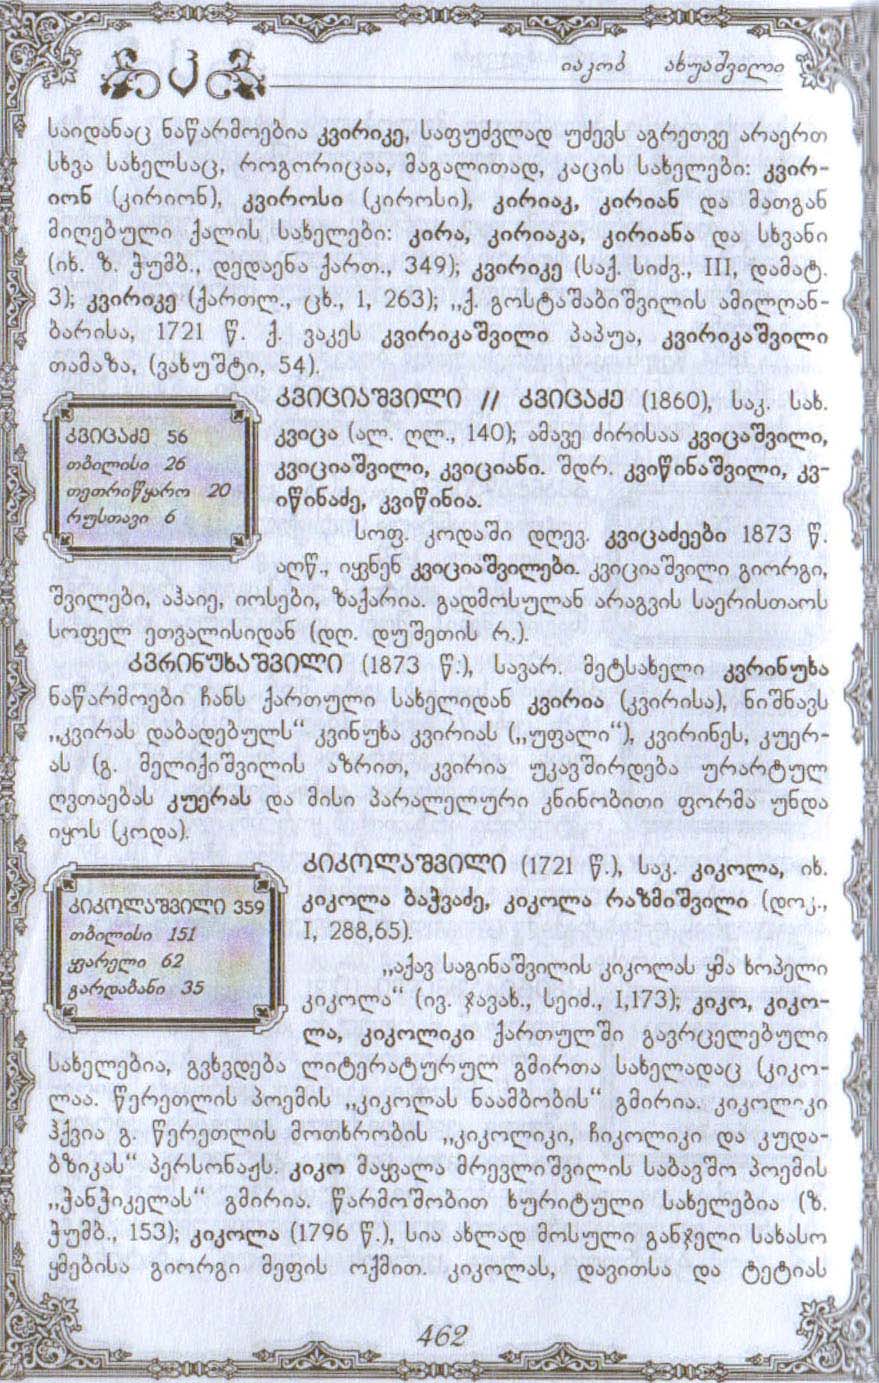 კ
იაკობ ახუაშვილი
საიდანაც ნაწარმოებია კვირიკე, საფუძვლად უძევს აგრეთვე არაერთ
სხვა სახელსაც, როგორიცაა, მაგალითად, კაცის სახელები: კვირ-
იონ (კირიონ), კვიროსი (კიროსი), კირიაკ, კირიან და მათგან
მიღებული ქალის სახელები: კირა, კირიაკა, კირიანა და სხვანი
(იხ. ზ. ჭუმბ., დედაენა ქართ., 349); კვირიკე (საქ. სიძვ., III, დამატ.
3); კვირიკე (ქართლ., ცხ., 1, 263); „ქ. გოსტაშაბიშვილის ამილღან-
ბარისა, 1721 წ. ქ. ვაკეს კვირიკაშვილი პაპუა, კვირიკაშვილი
თამაზა, (ვახუშტი, 54).
კვიციაშვილი // კვიცაძე (1860), საკ. სახ.
კვიცა (ალ. ღლ., 140); ამავე ძირისაა კვიცაშვილი,
კვიციაშვილი, კვიციანი. შდრ. კვიწინაშვილი, კვ-
იწინაძე, კვიწინია.
კვიცაძე 56
თბილისი 26
თეთრიწყარო 20
რუსთავი 6
სოფ. კოდაში დღევ. კვიცაძეები 1873 წ.
აღწ., იყვნენ კვიციაშვილები. კვიციაშვილი გიორგი,
შვილები, აჰაიე, იოსები, ზაქარია. გადმოსულან არაგვის საერისთაოს
სოფელ ეთვალისიდან (დღ. დუშეთის რ.).
კვრინუხაშვილი (1873 წ.), სავარ. მეტსახელი კვრინუხა
ნაწარმოები ჩანს ქართული სახელიდან კვირია (კვირისა), ნიშნავს
„კვირას დაბადებულს“ კვინუხა კვირიას („უფალი“), კვირინეს, კუერ-
ას (გ. მელიქიშვილის აზრით, კვირია უკავშირდება ურარტულ
ღვთაებას კუერას და მისი პარალელური კნინობითი ფორმა უნდა
იყოს (კოდა).
კიკოლაშვილი (1721 წ.), საკ. კიკოლა, იხ.
კიკოლა ბაჭვაძე, კიკოლა რაზმიშვილი (დოკ.,
I, 288,65).
კიკოლაშვილი 359
თბილისი 151
ყვარელი 62
გარდაბანი 35
„აქავ საგინაშვილის კიკოლას ყმა ხოპელი
კიკოლა“ (ივ. ჯავახ., სეიძ., I,173); კიკო, კიკო-
ლა, კიკოლიკი ქართულში გავრცელებული
სახელებია, გვხვდება ლიტერატურულ გმირთა სახელადაც (კიკო-
ლაა. წერეთლის პოემის „კიკოლას ნაამბობის“ გმირია. კიკოლიკი
ჰქვია გ. წერეთლის მოთხრობის „კიკოლიკი, ჩიკოლიკი და კუდა-
ბზიკას“ პერსონაჟს. კიკო მაყვალა მრევლიშვილის საბავშო პოემის
„ჭანჭიკელას“ გმირია. წარმოშობით ხურიტული სახელებია (ზ.
ჭუმბ., 153); კიკოლა (1796 წ.), სია ახლად მოსული განჯელი სახასო
ყმებისა გიორგი მეფის ოქმით. კიკოლას, დავითსა და ტეტიას
462